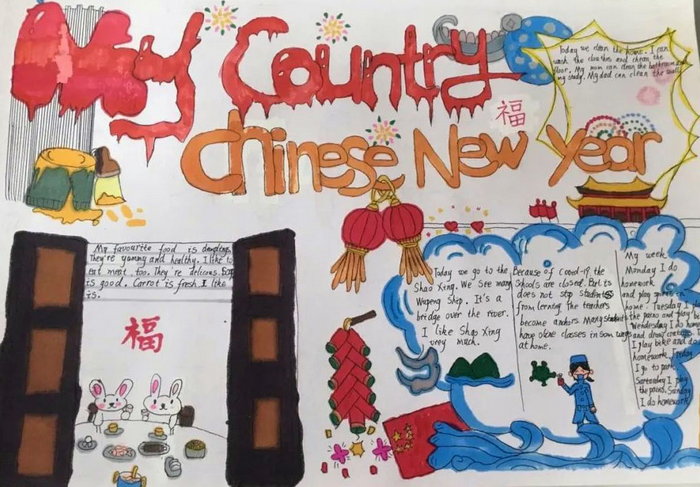 My Country
Chinese New Year
福
Today we clean the home. I can
wash the cloathes and clean the
floor. My mum can clean the bathroom and
my study. My dad can clean the
My favourite food is dumplings.
They're yummy and healthy. I like to
eat meat, too. They're delicious. Soup
is good. Carrot is fresh. I like
is.
福
Today we go to the
Shao Xing. We see many
Wupeng Ship. It's a
bridge over the river.
I like Shao Xing
very much.
Because of covid-19 the
Schools are closed. But is
does not stop students
from lerning. the teachers
become anchors. Many students
have oline classes in som ways
at home.
My week
Monday I do
homework
and play in
home. Tuesday I
the piano and play
Wendesday I do
and draw
I play bike and do
homework.
I go to park.
Saterday I play
the piano. Sunday
I do homework